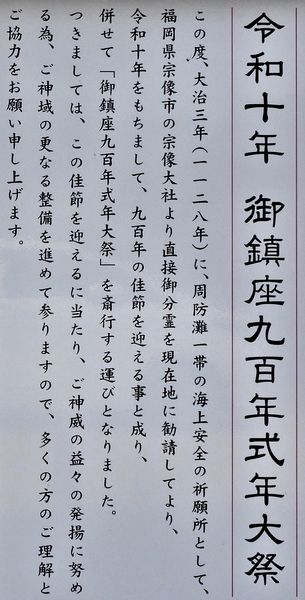 令和十年　御鎮座九百年式年大祭
この度、大治三年（一一二八年）に、周防灘一帯の海上安全の祈願所として、
福岡県宗像市の宗像大社より直接御分霊を現在地に勧請してより、
令和十年をもちまして、九百年の佳節を迎える事と成り、
併せて「御鎮座九百年式年大祭」を斎行する運びとなりました。
つきましては、この佳節を迎えるに当たり、ご神威の益々の発揚に努め
る為、ご神域の更なる整備を進めて参りますので、多くの方のご理解と
ご協力をお願い申し上げます。